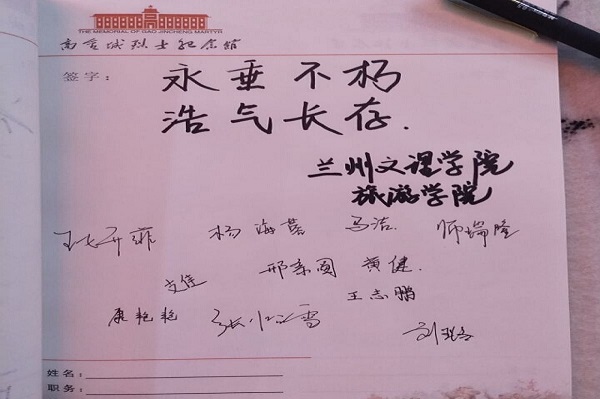 THE MEMORIAL OF GAO JINCHENG MARTYR
高金城烈士纪念馆
签字：
永垂不朽
浩气长存.
兰州文理学院
旅游学院
杨海 马洁 师瑞隆
邢素圆 黄健.
文佳
王志鹏
康艳艳
姓名：
职务：